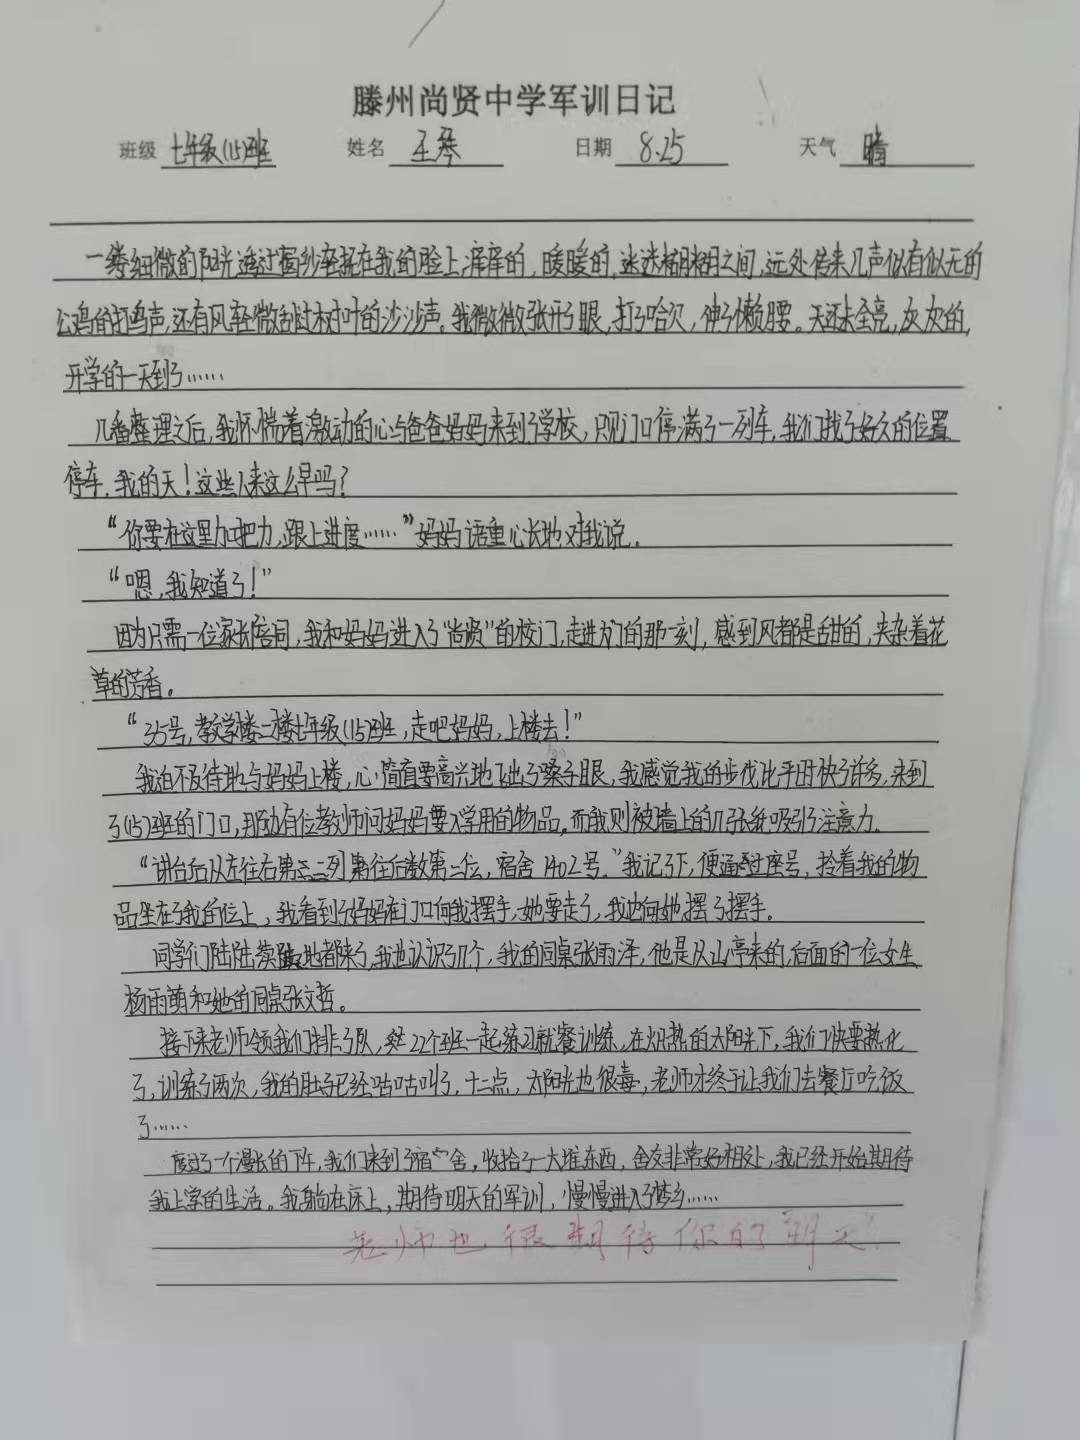 滕州尚贤中学军训日记
班级 七年级(15)班 姓名 王琴 日期 8.25 天气 晴
一缕细微的阳光透过窗纱轻抚在我的脸上,痒痒的,暖暖的,迷迷糊糊之间,远处传来几声似有似无的
公鸡的打鸣声,还有风轻微刮过树叶的沙沙声。我微微张开了眼,打了哈欠,伸了懒腰。天还未全亮,灰灰的,
开学的一天到了……
几番整理之后,我怀惴着激动的心与爸爸妈妈来到了学校,只见门口停满了一列车,我们找了好久的位置
停车,我的天!这些人来这么早吗?
“你要在这里加把力,跟上进度……”妈妈语重心长地对我说。
“嗯,我知道了!”
因为只需一位家长陪同,我和妈妈进入了“尚贤”的校门,走进大门的那一刻,感到风都是甜的,夹杂着花
草的芳香。
“35号,教学楼二楼七年级(15)班,走吧妈妈,上楼去!”
我迫不及待地与妈妈上楼,心简直要高兴地飞出了嗓子眼,我感觉我的步伐比平时快了许多,来到
了(15)班的门口,那边有位教师问妈妈要入学用的物品,而我则被墙上的几张纸吸引了注意力。
“讲台后从左往右第三列,第往后数第二位,宿舍1402号。”我记了下,便通过座号,拎着我的物
品坐在了我的位上,我看到了妈妈在门口向我摆手,她要走了,我也向她摆了摆手。
同学们陆陆续续地都来了,我也认识了几个,我的同桌张雨泽,他是从山亭来的,后面的一位女生
杨雨萌和她的同桌张文哲。
接下来老师领我们排了队,然22个班一起练习就餐训练,在炽热的太阳光下,我们快要热化
了,训练了两次,我的肚子已经咕咕叫了,十二点,太阳光也很毒,老师才终于让我们去餐厅吃饭
了……
度过了一个漫长的下午,我们来到了宿舍,收拾了一大堆东西,舍友非常好相处,我已经开始期待
我上学的生活。我躺在床上,期待明天的军训,慢慢进入了梦乡……
老师也很期待你的“明天”